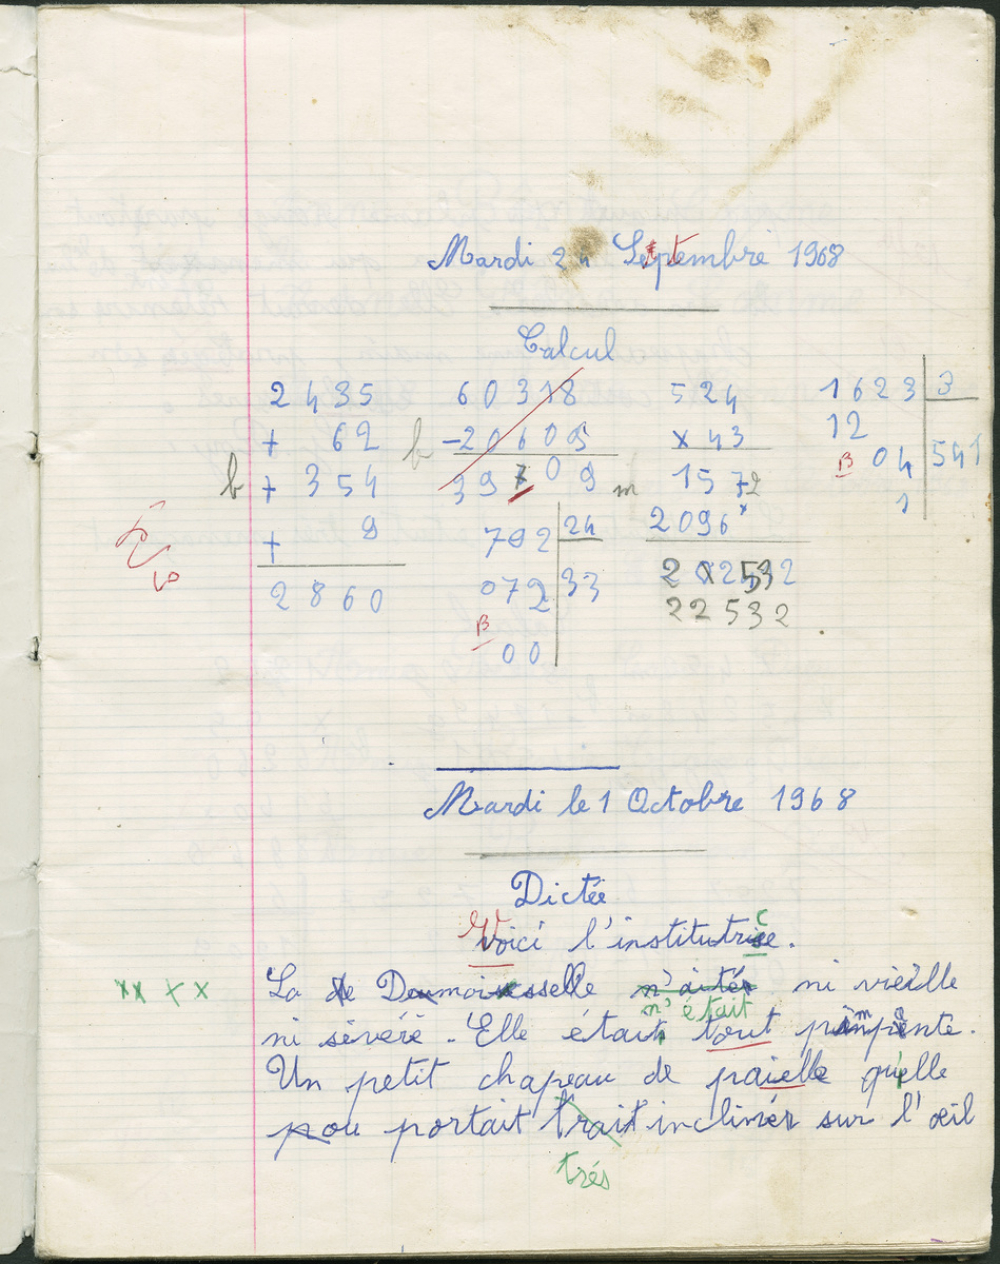 Mardi 24 Septembre 1968
Calcul
2435
+ 62
b + 354
+ 9
2860
b 60318
-20609
39709
702 | 24
072 | 33
B
00
524
× 43
m 1572
2096*
202532
22532
1623 | 3
12
B 04 | 541
1
Mardi le 1 Octobre 1968
Dictée
Voici l'institutrise.
c
xx x x La de Demoisselle n'aités ni vieille
n'était
ni sévère. Elle était tout pimpente.
Un petit chapeau de paielle quelle
pou portait trait inclinér sur l'œil
trés